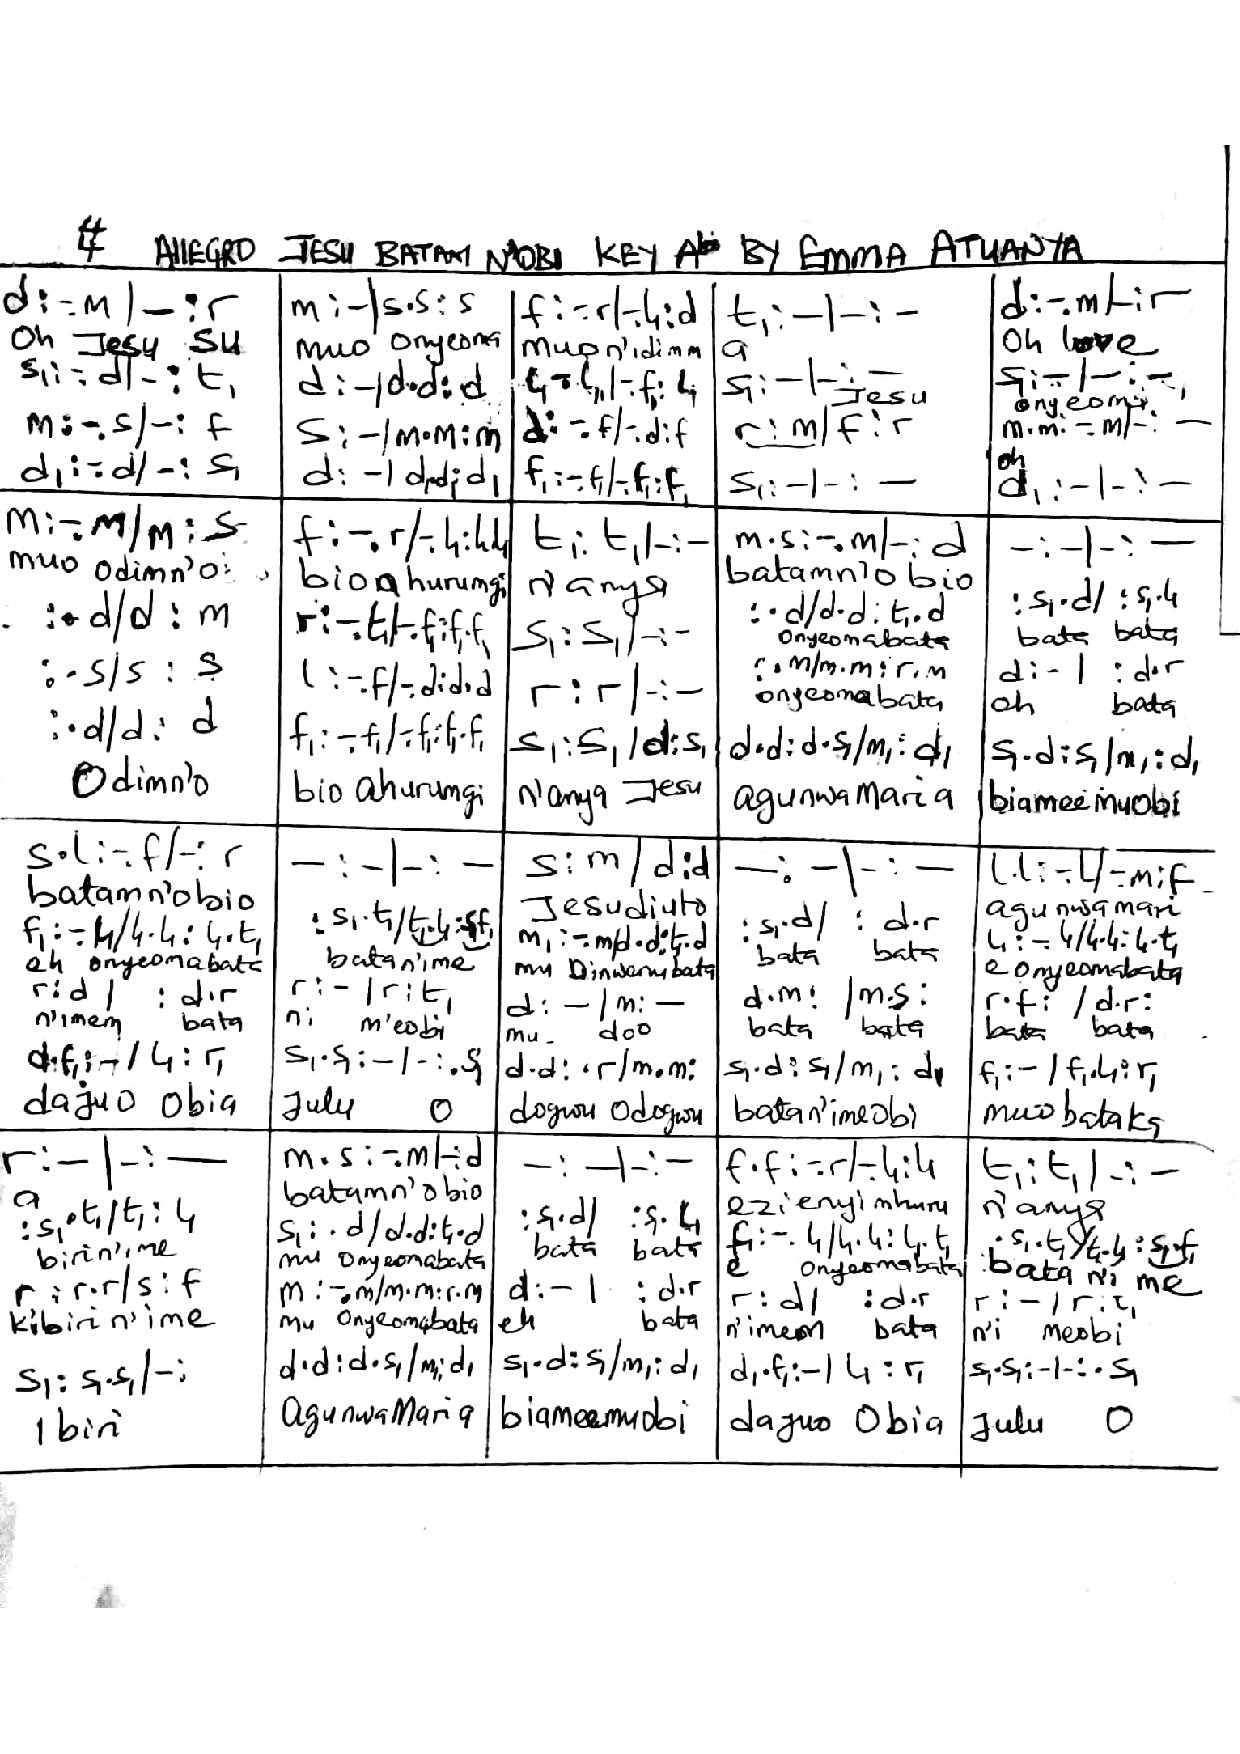 # ALLEGRO JESU BATAM N'OBI KEY Ab BY EMMA ATUANYA
d :-.m | - : r
Oh Jesu Su
s₁ :-.d | - : t₁
m :-.s | - : f
d₁ :-.d | - : s₁
m : - | s.s : s
muo onyeoma
d : - | d.d : d
s : - | m.m : m
d : - | d₁.d₁ : d₁
f :-.r | -.l₁ : d
muo n'idimm
l₁ :-.l₁ | -.f₁ : l₁
d :-.f | -.d : f
f₁ :-.f₁ | -.f₁ : f₁
t₁ : - | - : -
a
s₁ : - | - : -
Jesu
r : m | f : r
s₁ : - | - : -
d :-.m | - : r
Oh love
s₁ : - | - : -
onyeoma
m.m :-.m | - : -
oh
d₁ : - | - : -
m :-.m | m : s
muo odimn'o
: .d | d : m
: .s | s : s
: .d | d : d
Odimn'o
f :-.r | -.l₁ : l₁.l₁
bio ahurumgi
r :-.t₁ | -.f₁ : f₁.f₁
l :-.f | -.d : d.d
f₁ :-.f₁ | -.f₁ : f₁.f₁
bio ahurumgi
t₁ : t₁ | - : -
n'anya
s₁ : s₁ | - : -
r : r | - : -
s₁ : s₁ | d : s₁
n'anya Jesu
m.s :-.m | - : d
batamn'o bio
: .d | d.d : t₁.d
onyeomabata
: .m | m.m : r.m
onyeomabata
d.d : d.s₁ | m₁ : d₁
agunwa Maria
- : - | - : -
: s₁.d | : s₁.l₁
bata bata
d : - | : d.r
oh bata
s₁.d : s₁ | m₁ : d₁
biameemuobi
s.l :-.f | - : r
batamn'obio
f₁ :-.l₁ | l₁.l₁ : l₁.t₁
eh onyeomabata
r : d | : d.r
n'imem bata
d.f₁ : - | l₁ : r₁
dajuo Obia
- : - | - : -
: s₁.t₁ | t₁.l₁ : s₁.f₁
batan'ime
r : - | r : t₁
ni m'eobi
s₁.s₁ : - | - : .s₁
Julu O
s : m | d : d
Jesudiuto
m₁ :-.m | d.d : t₁.d
mu Dinwanubata
d : - | m : -
mu doo
d.d : .r | m.m :
dogwu Odogwu
- : - | - : -
: s₁.d | : d.r
bata bata
d.m : | m.s :
bata bata
s₁.d : s₁ | m₁ : d₁
batan'imeobi
l.l :-.l | -.m : f
agunwamari
l₁ :-.l₁ | l₁.l₁ : l₁.t₁
e onyeomabata
r.f : | d.r :
bata bata
f₁ : - | f₁.l₁ : r₁
muobataka
r : - | - : -
a
: s₁.t₁ | t₁ : l₁
birin'ime
r : r.r | s : f
kibirin'ime
s₁ : s₁.s₁ | - :
I biri
m.s :-.m | - : d
batamn'obio
s₁ : .d | d.d : t₁.d
mu Onyeomabata
m :-.m | m.m : r.m
mu Onyeomabata
d.d : d.s₁ | m₁ : d₁
AgunwaMaria
- : - | - : -
: s₁.d | : s₁.l₁
bata bata
d : - | : d.r
eh bata
s₁.d : s₁ | m₁ : d₁
biameemuobi
f.f :-.r | -.l₁ : l₁
ezienyimhuru
f₁ :-.l₁ | l₁.l₁ : l₁.t₁
e onyeomabata
r : d | : d.r
n'imem bata
d₁.f₁ : - | l₁ : r₁
dajuo Obia
t₁ : t₁ | - : -
n'anya
: s₁.t₁ | t₁.l₁ : s₁.f₁
bata n'i me
r : - | r : t₁
n'i meobi
s₁.s₁ : - | - : .s₁
Julu O